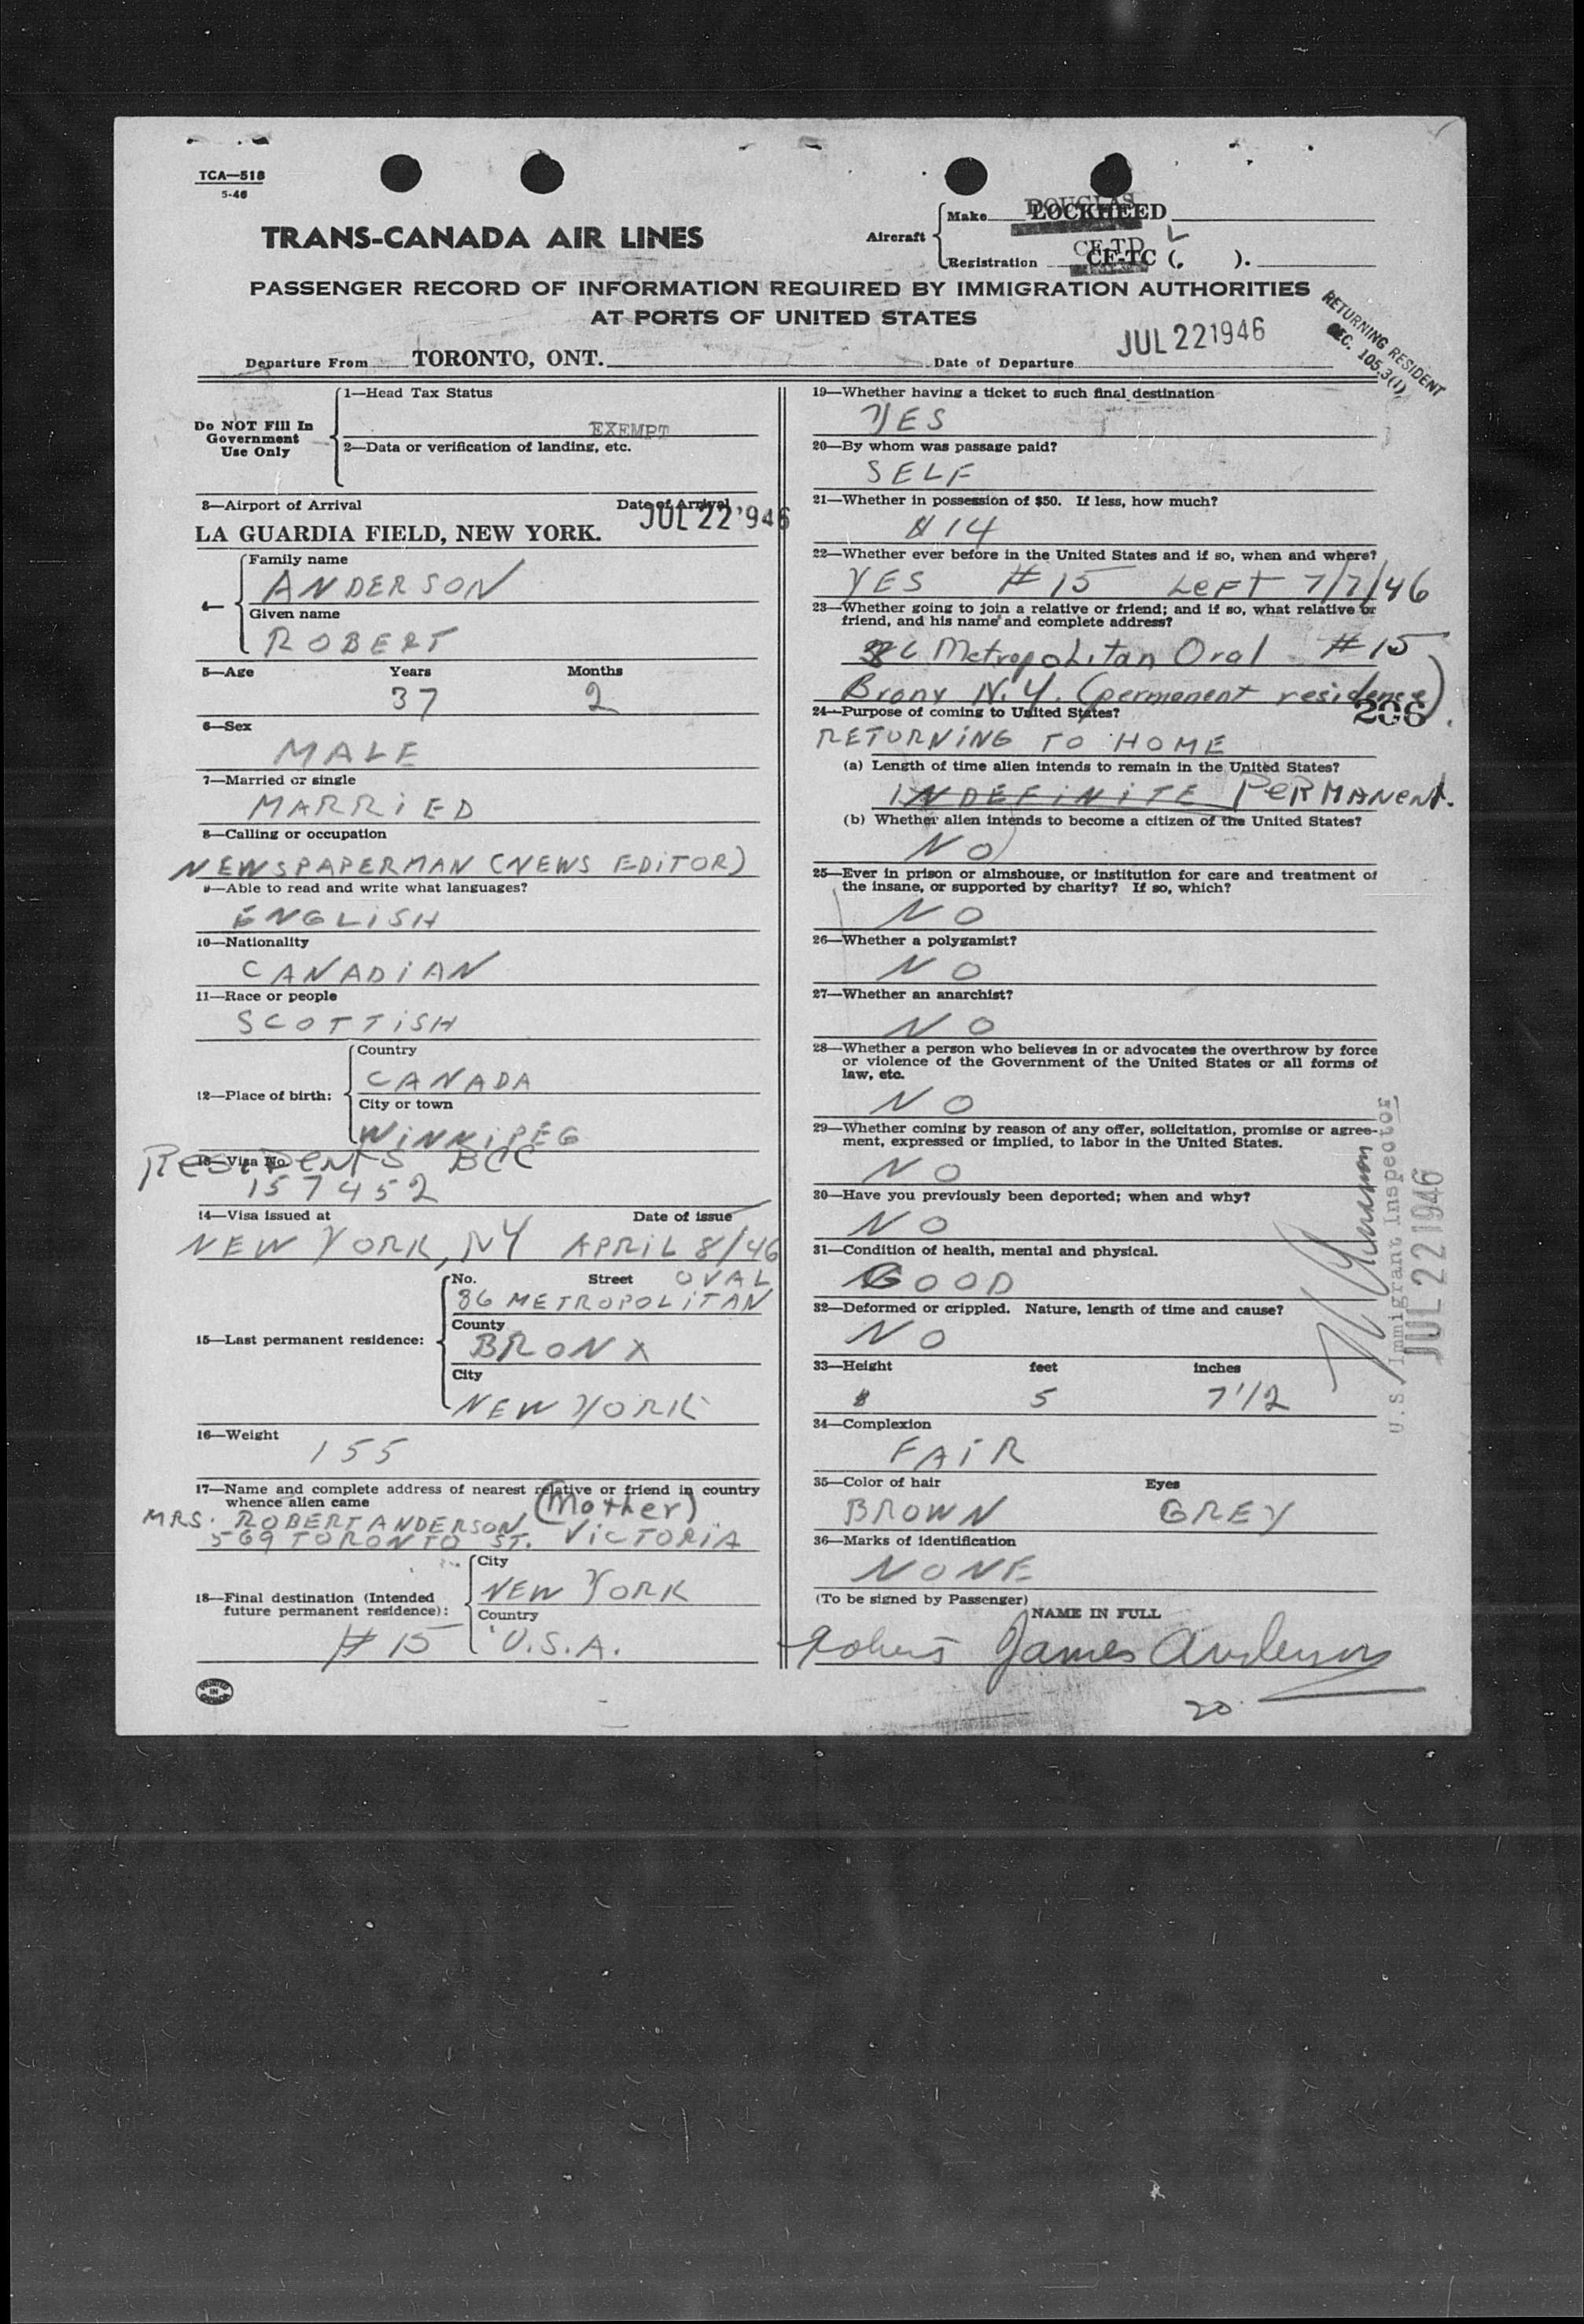 TCA—518
5-46
TRANS-CANADA AIR LINES
Aircraft
Make DOUGLAS LOCKHEED
Registration CF-TD CF-TC ( ).
PASSENGER RECORD OF INFORMATION REQUIRED BY IMMIGRATION AUTHORITIES
AT PORTS OF UNITED STATES
RETURNING RESIDENT
SEC. 105.3(1)
Departure From TORONTO, ONT. Date of Departure JUL 22 1946
Do NOT Fill In
Government
Use Only
1—Head Tax Status
EXEMPT
2—Data or verification of landing, etc.
3—Airport of Arrival Date of Arrival
LA GUARDIA FIELD, NEW YORK. JUL 22 '946
4—
Family name
ANDERSON
Given name
ROBERT
5—Age Years Months
37 2
6—Sex
MALE
7—Married or single
MARRIED
8—Calling or occupation
NEWSPAPERMAN (NEWS EDITOR)
9—Able to read and write what languages?
ENGLISH
10—Nationality
CANADIAN
11—Race or people
SCOTTISH
12—Place of birth:
Country
CANADA
City or town
WINNIPEG
13—Visa No. RESIDENTS BCC
157452
14—Visa issued at Date of issue
NEW YORK, NY APRIL 8/46
15—Last permanent residence:
No. Street OVAL
36 METROPOLITAN
County
BRONX
City
NEW YORK
16—Weight
155
17—Name and complete address of nearest relative or friend in country
whence alien came (Mother)
MRS. ROBERT ANDERSON
569 TORONTO ST. VICTORIA
18—Final destination (Intended
future permanent residence):
City
NEW YORK
Country
#15 U.S.A.
PRINTED
IN
CANADA
19—Whether having a ticket to such final destination
YES
20—By whom was passage paid?
SELF
21—Whether in possession of $50. If less, how much?
$14
22—Whether ever before in the United States and if so, when and where?
YES #15 Left 7/7/46
23—Whether going to join a relative or friend; and if so, what relative or
friend, and his name and complete address?
36 Metropolitan Oval #15
Bronx N.Y. (permanent residence)
206
24—Purpose of coming to United States?
RETURNING TO HOME
(a) Length of time alien intends to remain in the United States?
INDEFINITE PERMANENT.
(b) Whether alien intends to become a citizen of the United States?
NO
25—Ever in prison or almshouse, or institution for care and treatment of
the insane, or supported by charity? If so, which?
NO
26—Whether a polygamist?
NO
27—Whether an anarchist?
NO
28—Whether a person who believes in or advocates the overthrow by force
or violence of the Government of the United States or all forms of
law, etc.
NO
29—Whether coming by reason of any offer, solicitation, promise or agree-
ment, expressed or implied, to labor in the United States.
NO
30—Have you previously been deported; when and why?
NO
31—Condition of health, mental and physical.
GOOD
32—Deformed or crippled. Nature, length of time and cause?
NO
33—Height feet inches
5 7 1/2
34—Complexion
FAIR
35—Color of hair Eyes
BROWN GREY
36—Marks of identification
NONE
(To be signed by Passenger)
NAME IN FULL
Robert James Anderson
20
U.S. Immigrant Inspector
JUL 22 1946